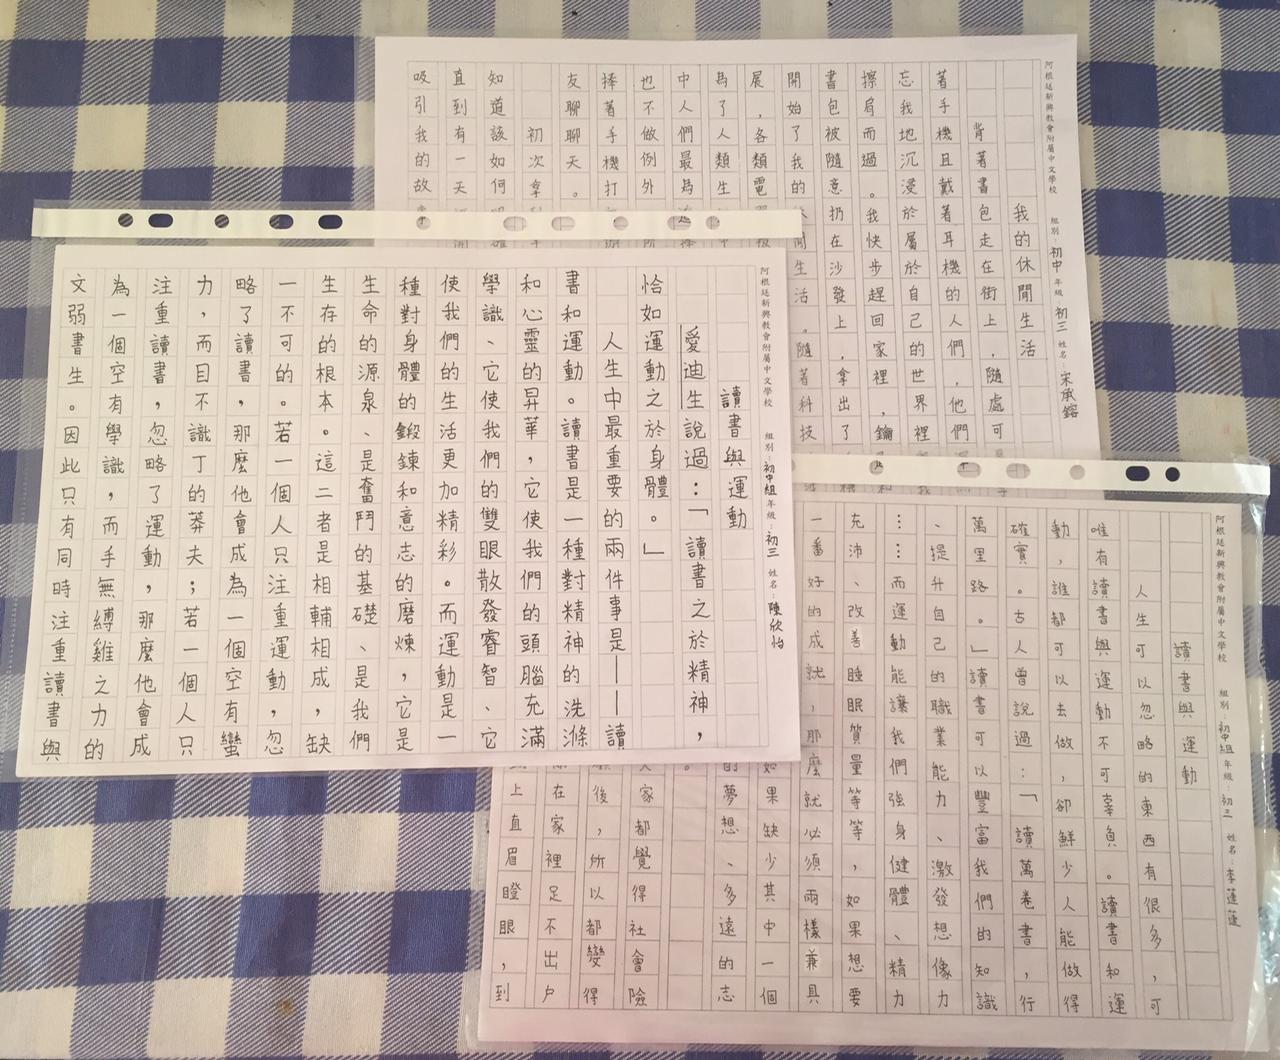 阿根廷新興教會附屬中文學校 組別：初中 年級：初三 姓名 宋承鎔
我的休閒生活
背著書包走在街上，隨處可
著手機且戴著耳機的人們，他們
忘我地沉浸於屬於自己的世界裡
擦肩而過。我快步趕回家裡，鑰
書包被隨意扔在沙發上，拿出了
開始了我的休閒生活。隨著科技
展，各類電
為了人類生
中人們最為
也不做例外
捧著手機打
友聊聊天。
初次拿
知道該如何
直到有一天
吸引我的故
阿根廷新興教會附屬中文學校 組別：初中組 年級：初三 姓名：陳欣怡
讀書與運動
愛迪生說過：「讀書之於精神，
恰如運動之於身體。」
人生中最重要的兩件事是——讀
書和運動。讀書是一種對精神的洗滌
和心靈的昇華，它使我們的頭腦充滿
學識、它使我們的雙眼散發睿智、它
使我們的生活更加精彩。而運動是一
種對身體的鍛鍊和意志的磨煉，它是
生命的源泉、是奮鬥的基礎、是我們
生存的根本。這二者是相輔相成，缺
一不可的。若一個人只注重運動，忽
略了讀書，那麼他會成為一個空有蠻
力，而目不識丁的莽夫；若一個人只
注重讀書，忽略了運動，那麼他會成
為一個空有學識，而手無縛雞之力的
文弱書生。因此只有同時注重讀書與
阿根廷新興教會附屬中文學校 組別：初中組 年級：初三 姓名：李蓮蓮
讀書與運動
人生可以忽略的東西有很多，可
唯有讀書與運動不可辜負。讀書和運
動，誰都可以去做，卻鮮少人能做得
確實。古人曾說過：「讀萬卷書，行
萬里路。」讀書可以豐富我們的知識
、提升自己的職業能力、激發想像力
……而運動能讓我們強身健體、精力
充沛、改善睡眠質量等等，如果想要
一番好的成就，那麼就必須兩樣兼具
如果缺少其中一個
的夢想、多遠的志
。
家都覺得社會險
後，所以都變得
在家裡足不出戶
上直眉瞪眼，到